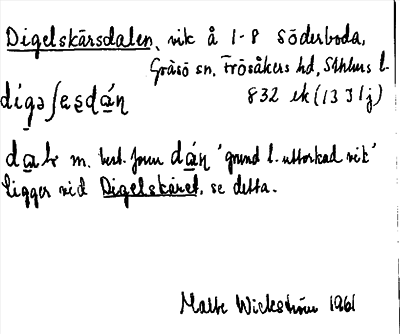 Digelskärsdalen, vik å 1-8 Söderboda,
Gräsö sn, Frösåkers hd, Sthlms l.
832 ek (13 I 1j)
m. best. form 'grund l. uttorkad vik'
ligger vid Digelskäret, se detta.
Malte Wickström 1961